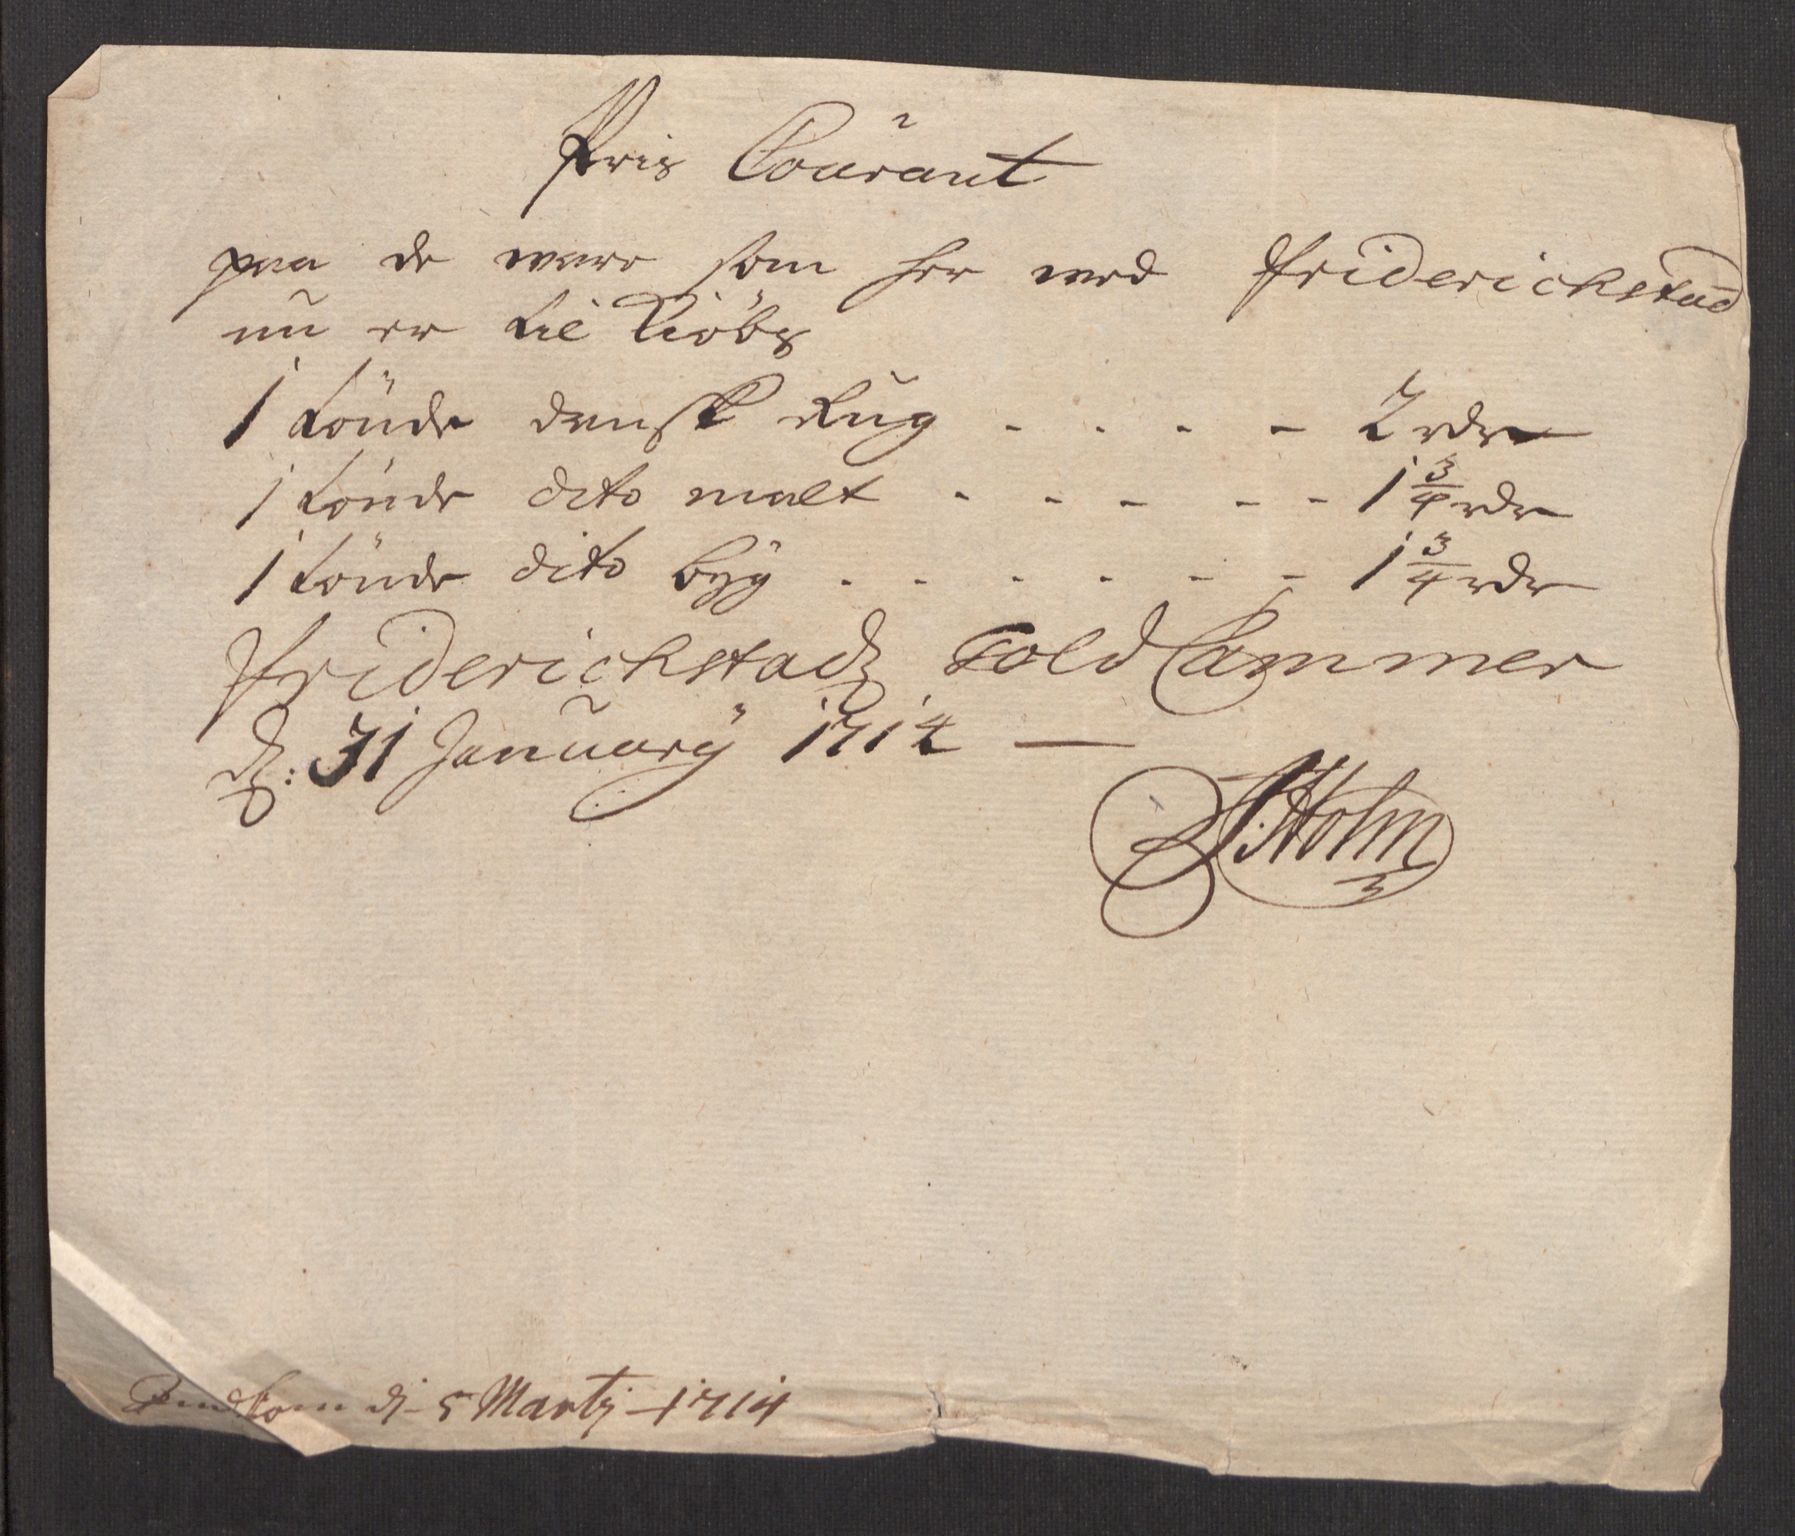 Pris Courant
paa de ware som her ved Friderichstad
nu er til Kiöbs
1 tönde dansk Rug - - - - 2 rdr
1 tönde dito malt - - - - - 1 3/4 rdr
1 tönde dito byg - - - - - - 1 3/4 rdr
Friderichstads Told Cammer
d: 31 January 1714 —
J: Holm
Indkom d. 5 Marty 1714